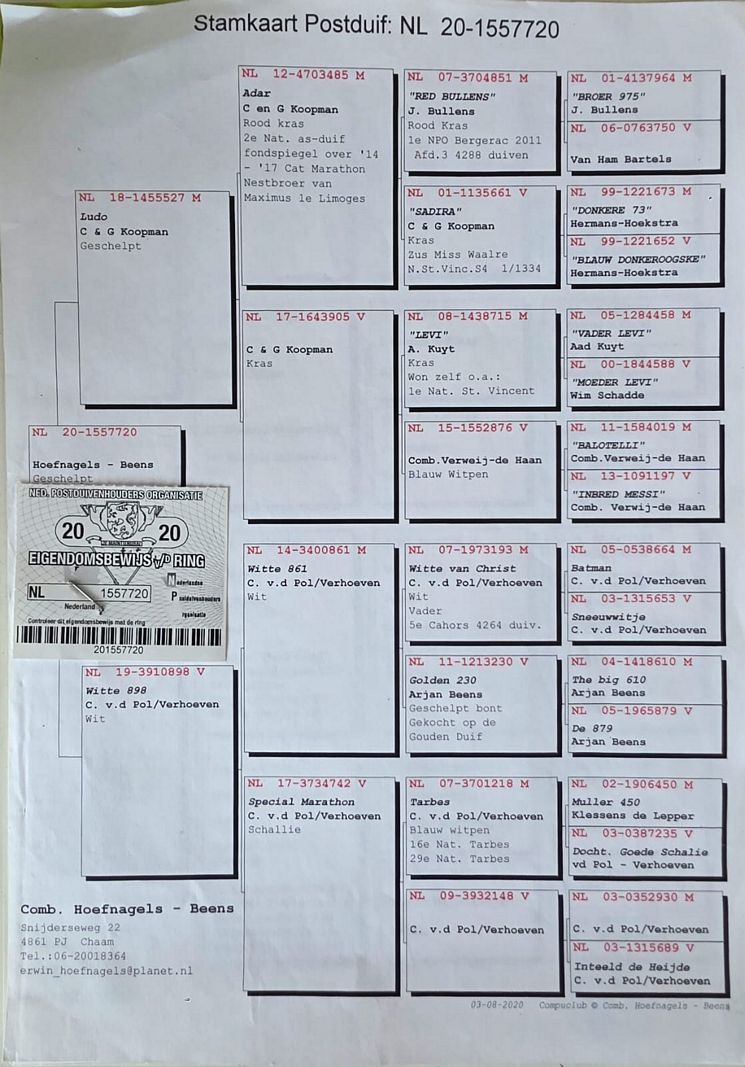 Stamkaart Postduif: NL 20-1557720
NL 20-1557720
Hoefnagels - Beens
Geschelpt
NED. POSTDUIVENHOUDERS ORGANISATIE
20
20
EIGENDOMSBEWIJS v/D RING
NL 1557720
Nederland
Nederlandse
Postduivenhouders
Organisatie
Controleer dit eigendomsbewijs met de ring
201557720
NL 18-1455527 M
Ludo
C & G Koopman
Geschelpt
NL 19-3910898 V
Witte 898
C. v.d Pol/Verhoeven
Wit
NL 12-4703485 M
Adar
C en G Koopman
Rood kras
2e Nat. as-duif
fondspiegel over '14
- '17 Cat Marathon
Nestbroer van
Maximus 1e Limoges
NL 17-1643905 V
C & G Koopman
Kras
NL 14-3400861 M
Witte 861
C. v.d Pol/Verhoeven
Wit
NL 17-3734742 V
Special Marathon
C. v.d Pol/Verhoeven
Schallie
NL 07-3704851 M
"RED BULLENS"
J. Bullens
Rood Kras
1e NPO Bergerac 2011
Afd.3 4288 duiven
NL 01-1135661 V
"SADIRA"
C & G Koopman
Kras
Zus Miss Waalre
N.St.Vinc.S4 1/1334
NL 08-1438715 M
"LEVI"
A. Kuyt
Kras
Won zelf o.a.:
1e Nat. St. Vincent
NL 15-1552876 V
Comb.Verweij-de Haan
Blauw Witpen
NL 07-1973193 M
Witte van Christ
C. v.d Pol/Verhoeven
Wit
Vader
5e Cahors 4264 duiv.
NL 11-1213230 V
Golden 230
Arjan Beens
Geschelpt bont
Gekocht op de
Gouden Duif
NL 07-3701218 M
Tarbes
C. v.d Pol/Verhoeven
Blauw witpen
16e Nat. Tarbes
29e Nat. Tarbes
NL 09-3932148 V
C. v.d Pol/Verhoeven
NL 01-4137964 M
"BROER 975"
J. Bullens
NL 06-0763750 V
Van Ham Bartels
NL 99-1221673 M
"DONKERE 73"
Hermans-Hoekstra
NL 99-1221652 V
"BLAUW DONKEROOGSKE"
Hermans-Hoekstra
NL 05-1284458 M
"VADER LEVI"
Aad Kuyt
NL 00-1844588 V
"MOEDER LEVI"
Wim Schadde
NL 11-1584019 M
"BALOTELLI"
Comb.Verweij-de Haan
NL 13-1091197 V
"INBRED MESSI"
Comb. Verwij-de Haan
NL 05-0538664 M
Batman
C. v.d Pol/Verhoeven
NL 03-1315653 V
Sneeuwwitje
C. v.d Pol/Verhoeven
NL 04-1418610 M
The big 610
Arjan Beens
NL 05-1965879 V
De 879
Arjan Beens
NL 02-1906450 M
Muller 450
Klessens de Lepper
NL 03-0387235 V
Docht. Goede Schalie
vd Pol - Verhoeven
NL 03-0352930 M
C. v.d Pol/Verhoeven
NL 03-1315689 V
Inteeld de Heijde
C. v.d Pol/Verhoeven
Comb. Hoefnagels - Beens
Snijderseweg 22
4861 PJ Chaam
Tel.:06-20018364
erwin_hoefnagels@planet.nl
03-08-2020 Compuclub © Comb. Hoefnagels - Beens